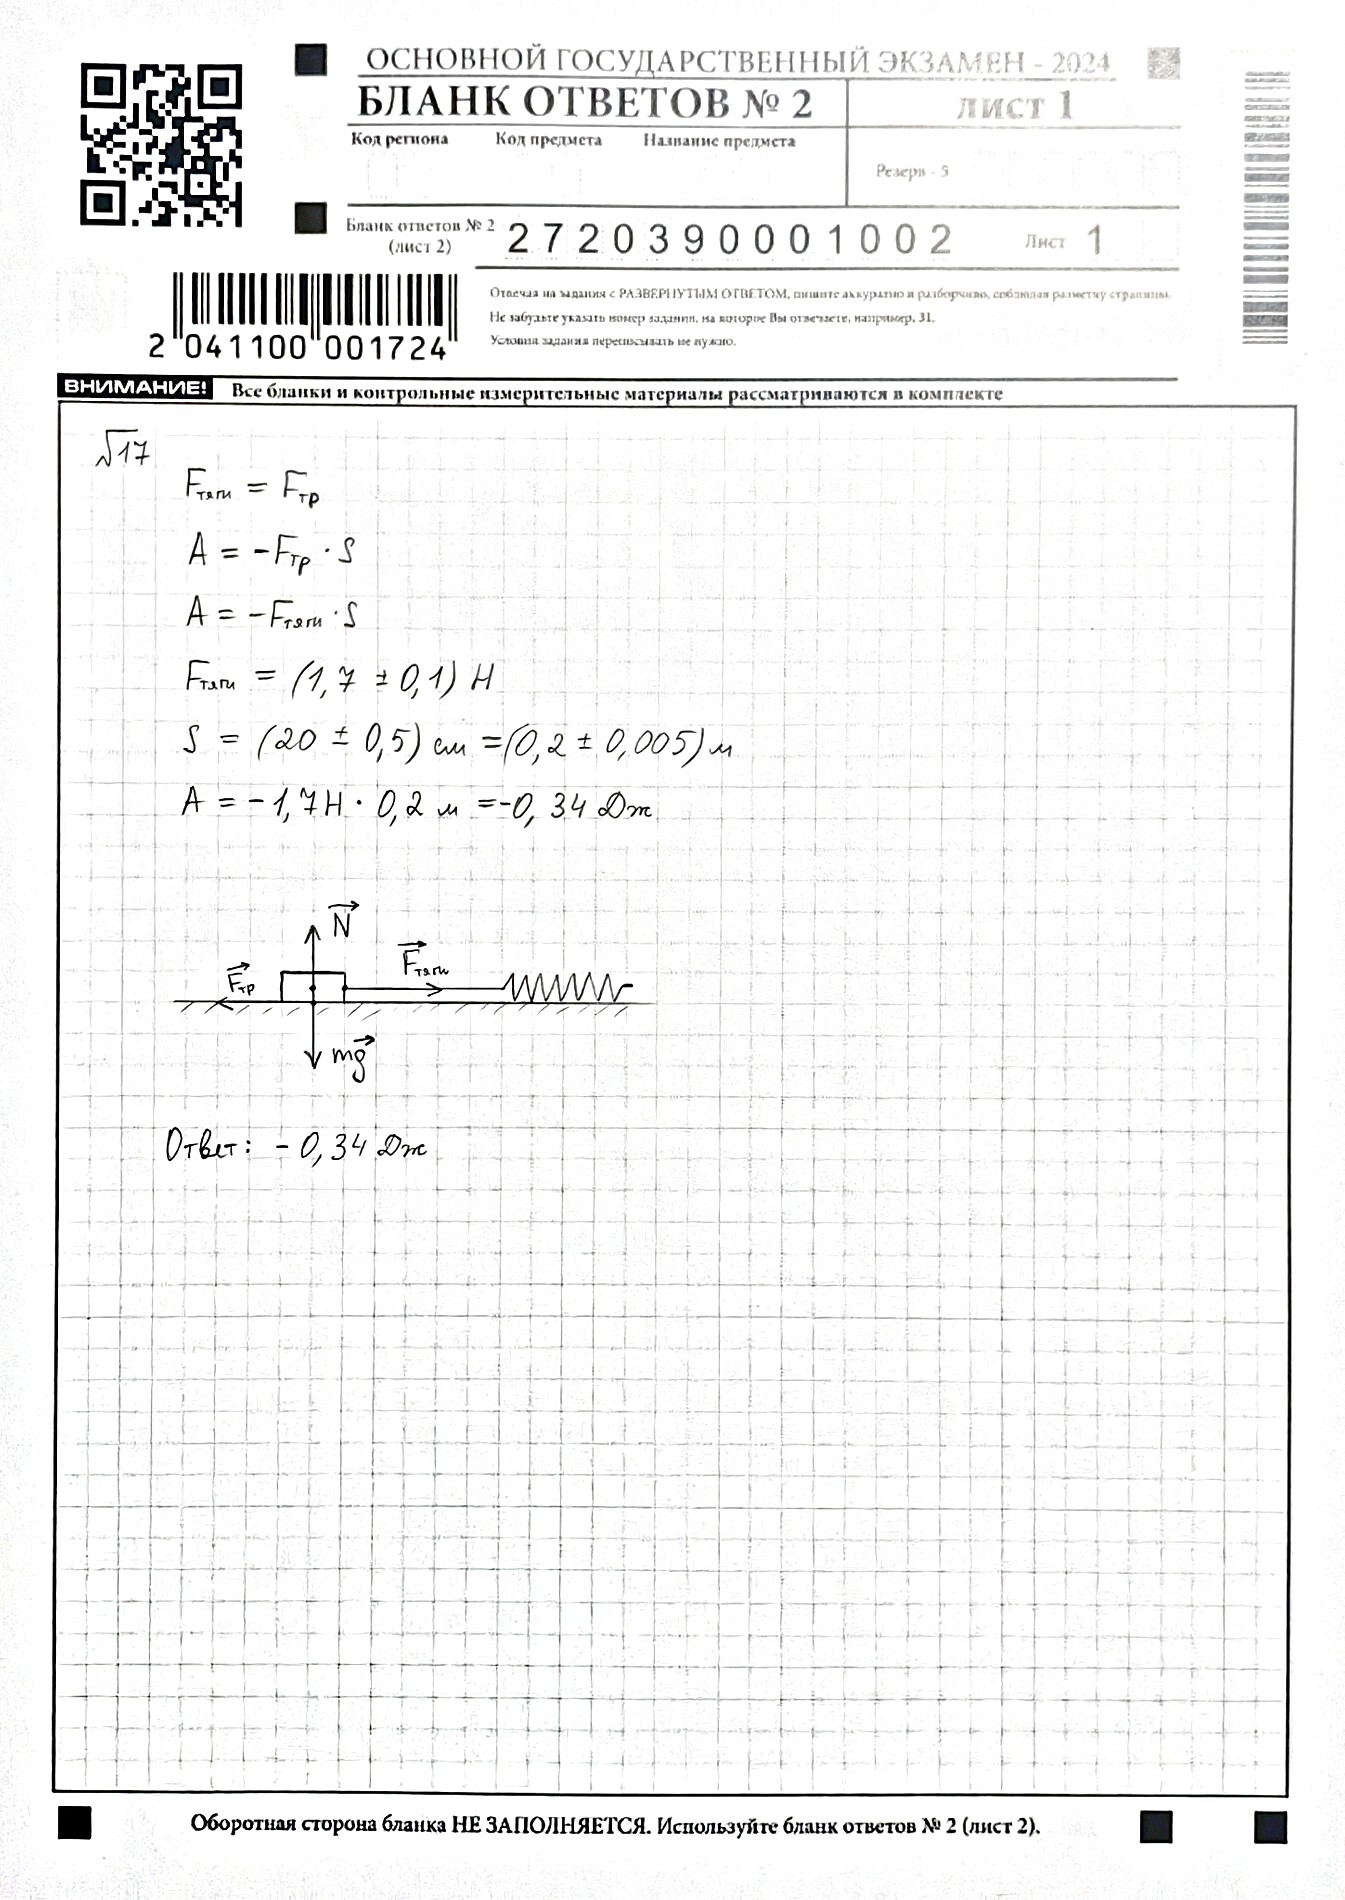 ОСНОВНОЙ ГОСУДАРСТВЕННЫЙ ЭКЗАМЕН - 2024
БЛАНК ОТВЕТОВ № 2
лист 1
Код региона Код предмета Название предмета
Резерв - 5
Бланк ответов № 2
(лист 2)
2720390001002
Лист 1
Отвечая на задания с РАЗВЕРНУТЫМ ОТВЕТОМ, пишите аккуратно и разборчиво, соблюдая разметку страницы.
Не забудьте указать номер задания, на которое Вы отвечаете, например, 31.
Условия задания переписывать не нужно.
2 041100 001724
ВНИМАНИЕ! Все бланки и контрольные измерительные материалы рассматриваются в комплекте
√17
Fтяги = Fтр
A = -Fтр · S
A = -Fтяги · S
Fтяги = (1,7 ± 0,1) Н
S = (20 ± 0,5) см = (0,2 ± 0,005) м
A = -1,7Н · 0,2 м = -0,34 Дж
N
Fтр
Fтяги
mg
Ответ: - 0,34 Дж
Оборотная сторона бланка НЕ ЗАПОЛНЯЕТСЯ. Используйте бланк ответов № 2 (лист 2).